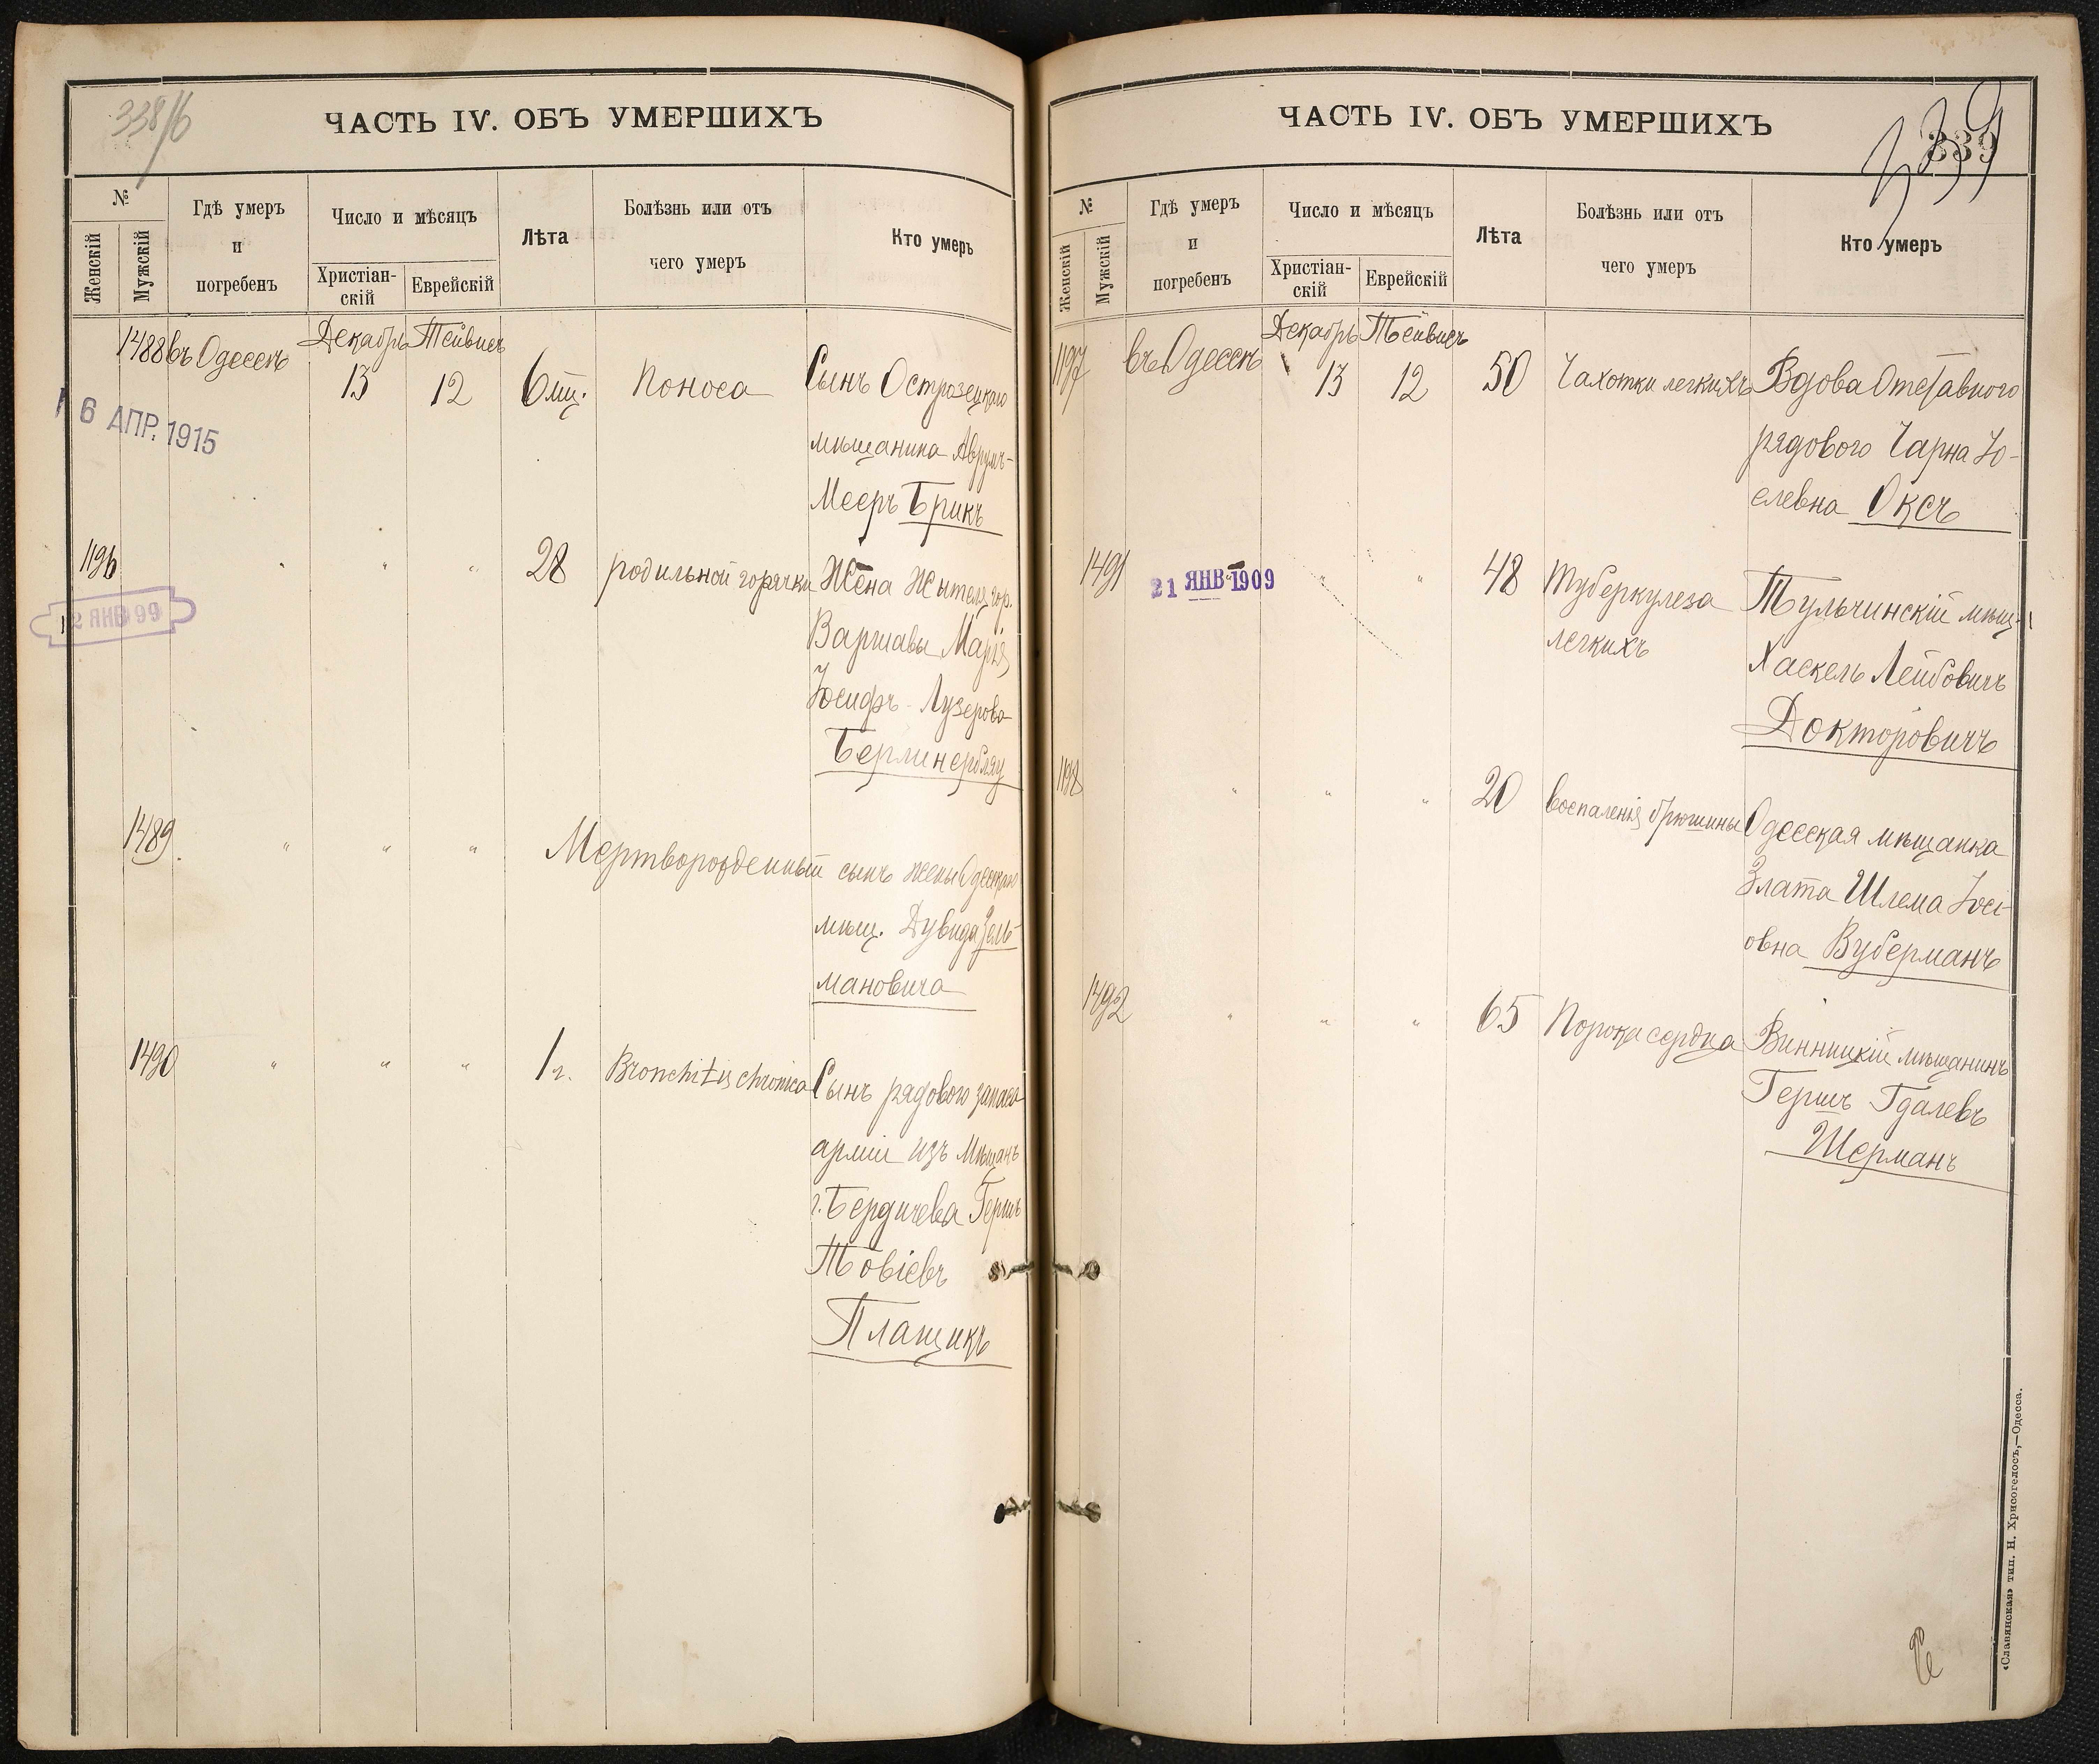 338/б
ЧАСТЬ IV. ОБЪ УМЕРШИХЪ
№
Женскій
Мужскій
Гдѣ умеръ
и
погребенъ
Число и мѣсяцъ
Христіан-
скій
Еврейскій
Лѣта
Болѣзнь или отъ
чего умеръ
Кто умеръ
1488 въ Одессѣ Декабрь 13 Тейвисъ 12 6 мц. Поноса Сынъ Острозецкаго
мѣщанина Аврумъ-
Мееръ Брикъ
6 АПР. 1915
1196 " " " 28 родильной горячки Жена Жителя гор.
Варшавы Марія
Іосифъ-Лузерова
Берлинерблау
12 ЯНВ 99
1489 " " " Мертворожденный сынъ жены Одесскаго
мѣщ. Дувида Зель-
мановича
1490 " " " 1 г. Bronchitis chronica Сынъ рядового запаса
арміи изъ Мѣщанъ
г. Бердичева Гершъ
Товіевъ
Плащикъ
ЧАСТЬ IV. ОБЪ УМЕРШИХЪ
339
339
№
Женскій
Мужскій
Гдѣ умеръ
и
погребенъ
Число и мѣсяцъ
Христіан-
скій
Еврейскій
Лѣта
Болѣзнь или отъ
чего умеръ
Кто умеръ
1197 въ Одессѣ Декабрь 13 Тейвисъ 12 50 Чахотки легкихъ Вдова Отставного
рядового Чарна Іо-
селевна Оксъ
1491 " " " 48 Туберкулеза Тульчинскій мѣщ.
легкихъ Хаскель Лейбовичъ
Докторовичъ
21 ЯНВ 1909
1198 " " " 20 воспаленія брюшины Одесская мѣщанка
Злата Шлема Іосі-
овна Вуберманъ
1492 " " " 65 Порока сердца Винницкій мѣщанинъ
Гершъ Гдалевъ
Шерманъ
«Славянская» тип. Н. Хрисогелосъ,—Одесса.